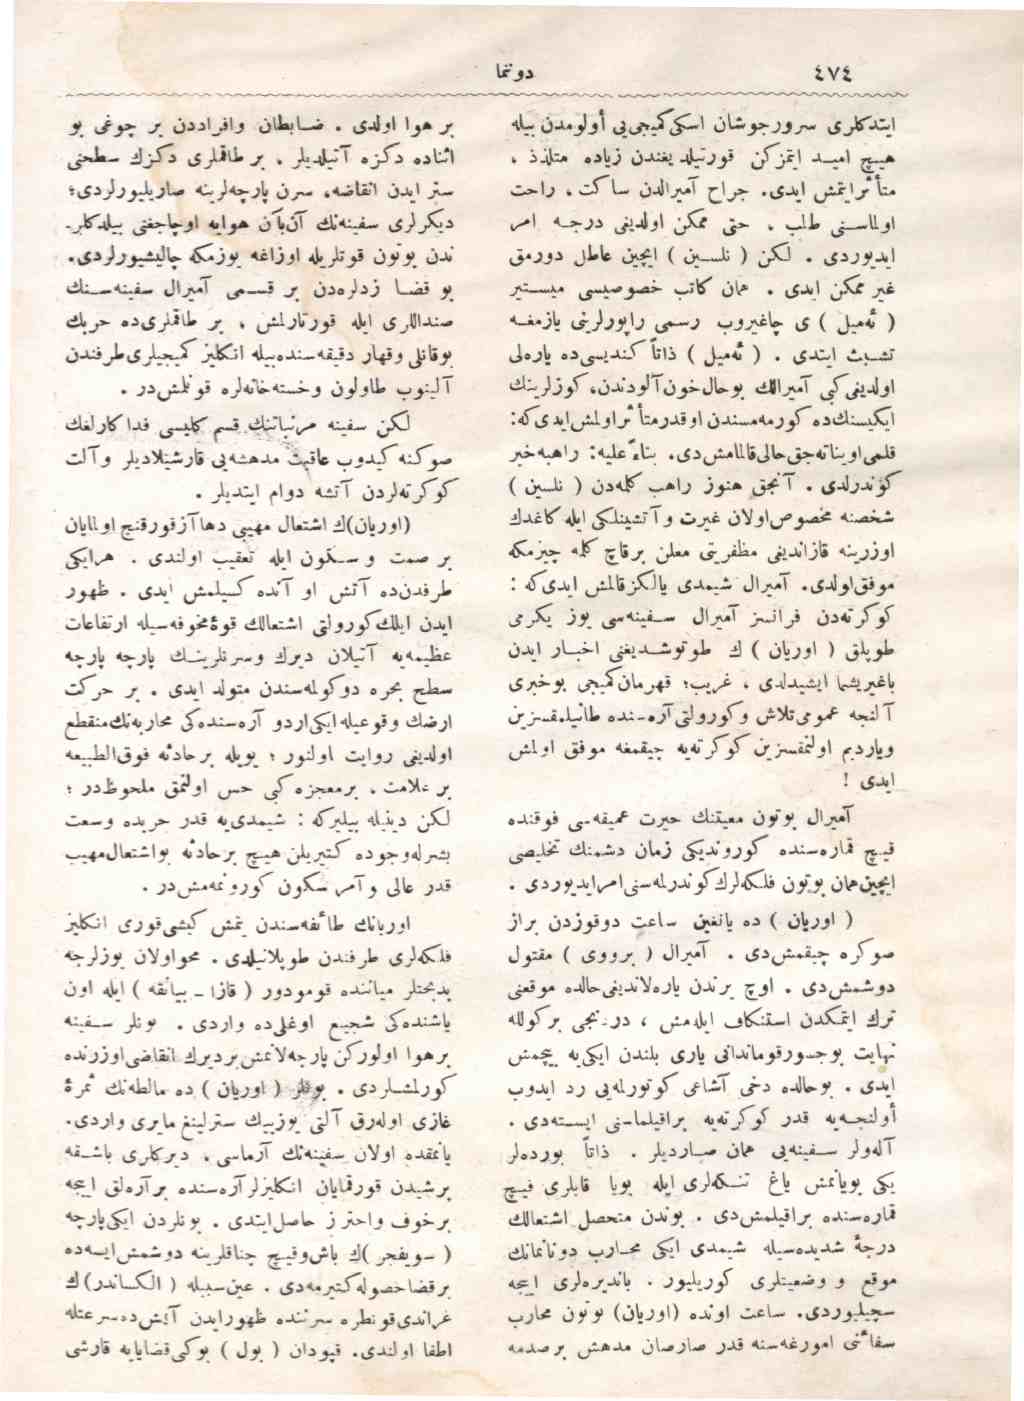 ٤٧٤
دوننما
ايتدكلرى سرورجوشان اسكى كميجى يى أولومدن بيله
هيچ اميد ايتمزكن قورتيلديغندن زياده متلذذ ،
متأثر ايتمش ايدى. جراح آميرالدن ساكت ، راحت
اولماسنى طلب ، حتى ممكن اولديغى درجه امر
ايديوردى . لكن ( نلسين ) ايچين عاطل دورمق
غير ممكن ايدى . همان كاتب خصوصيسى ميستير
( ئه ميل ) ى چاغيروب رسمى راپورلرينى يازمغه
تشبث ايتدى . ( ئه ميل ) ذاتاً كنديسى ده ياره لى
اولديغى كبى آميرالك بوحال خون آلودندن، كوزلرينك
ايكيسنك ده كورمه مسندن اوقدر متأثر اولمش ايدى كه:
قلمى اويناته جق حالى قالمامش دى. بناءً عليه: راهبه خبر
كوندرلدى . آنجق هنوز راهب كلمه دن ( نلسين )
شخصنه مخصوص اولان غيرت و آتشينلكى ايله كاغدك
اوزرينه قازانديغى مظفريتى معلن برقاچ كلمه چيزمكه
موفق اولدى. آميرال شيمدى يالكز قالمش ايدى كه :
كوكرته دن فرانسز آميرال سفينه سى يوز يكرمى
طوپلق ( اوريان ) ك طوتوشديغنى اخبار ايدن
باغيريشما ايشيدلدى ، غريب؛ قهرمان كميجى بوخبرى
آلنجه عمومى تلاش وكورولتى آره سنده طانيلمقسزين
وياردم اولنمقسزين كوكرته يه چيقمغه موفق اولمش
ايدى !
آميرال بوتون معيتنك حيرت عميقه سى فوقنده
قيچ قماره سنده كوروندیكى زمان دشمنك تخليصى
ايچين همان بوتون فلكه لرك كوندرلمه سنى امر ايديوردى .
( اوريان ) ده يانغين ساعت دوقوزدن براز
صوكره چيقمش دى . آميرال ( برووى ) مقتول
دوشمش دى . اوچ يرندن ياره لانديغى حالده موقعنى
ترك ايتمكدن استنكاف ايله مش ، دردنجى بركولله
نهايت بو جسور قوماندانى يارى بلندن ايكى يه بيچمش
ايدى . بوحالده دخى آشاغى كوتورلمه يى رد ايدوب
أولنجه يه قدر كوكرته يه براقيلماسنى ايسته دى .
آله ولر سفينه يى همان صارديلر . ذاتاً بورده لر
يكى بويانمش ياغ تنكه لرى ايله بويا قابلرى قيچ
قماره سنده براقيلمش دى . بوندن متحصل اشتعالك
درجهٔ شديده سيله شيمدى ايكى محارب دوننمانك
موقع و وضعيتلرى كوريليور . بانديره لرى اييجه
سچيليوردى. ساعت اونده (اوريان) بوتون محارب
سفائنى امورغه سنه قدر صارصان مدهش برصدمه
بر هوا اولدى . ضابطان وافراددن بر چوغى بو
اثناده دكزه آتيلديلر ، بر طاقملرى دكزك سطحنى
ستر ايدن انقاضه، سرن پارچه لرينه صاريليورلردى؛
ديكرلرى سفينه نك آن بآن هوايه اوچاجغنى بيلدكلر-
ندن بوتون قوتلريله اوزاغه يوزمكه چاليشيورلردى.
بو قضا زدلره دن بر قسمى آميرال سفينه سنك
صنداللرى ايله قورتارلمش ، بر طاقملرى ده حربك
بوقانلى وقهار دقيقه سنده بيله انكليز كميجيلرى طرفندن
آلينوب طاولون وخسته خانه لره قونلمش در .
لكن سفينه مرتباتنك قسم كليسى فدا كارلغك
صوكنه كيدوب عاقبت مدهشه يى قارشيلاديلر و آلت
كوكرته لردن آتشه دوام ايتديلر .
(اوريان)ك اشتعال مهيبى دها آز قورقنج اولمايان
بر صمت و سكون ايله تعقيب اولندى . هرايكى
طرفدن ده آتش او آنده كسيلمش ايدى . ظهور
ايدن ايلك كورولتى اشتعالك قوهٔ مخوفه سيله ارتفاعات
عظيمه يه آتيلان ديرك وسرنلرينك پارچه پارچه
سطح بحره دوكولمه سندن متولد ايدى . بر حركت
ارضك وقوعيله ايكى اردو آره سنده كى محاربه نك منقطع
اولديغى روايت اولنور ؛ بويله برحادثه فوق الطبيعه
بر علامت ، برمعجزه كبى حس اولنمق ملحوظ در ؛
لكن دينيله بيليركه : شيمدى يه قدر حربده وسعت
بشرله وجوده كتيريلن هيچ برحادثه بواشتعال مهيب
قدر عالى و آمر سكون كورونمه مش در .
اوريانك طائفه سندن يتمش كيشى قورى انكليز
فلكه لرى طرفندن طوپلانيلدى . محو اولان يوزلرجه
بدبختلر مياننده قومودور ( قازا - بيانقه ) ايله اون
ياشنده كى شجيع اوغلى ده واردى . بونلر سفينه
برهوا اولوركن پارچه لانمش بر ديرك انقاضى اوزرنده
كورلمشلردى . بونلر ( اوريان ) ده مالطه نك ثمرهٔ
غازى اوله رق آلتى يوزبيك سترلينغ مايرى واردى.
يانمقده اولان سفينه نك آرماسى ، ديركلرى باشقه
برشيدن قورقمايان انكليزلر آره سنده بر آره لق اييجه
برخوف واحتراز حاصل ايتدى . بونلردن ايكى پارچه
( سويفجر )ك باش وقيچ چناقلرينه دوشمش ايسه ده
برقضا حصوله كتيرمه دى . عين سببله ( الكساندر) ك
غراندى قونطره سرننده ظهور ايدن آتش ده سرعتله
اطفا اولندى. قپودان ( بول ) بوكى قضايايه قارشى